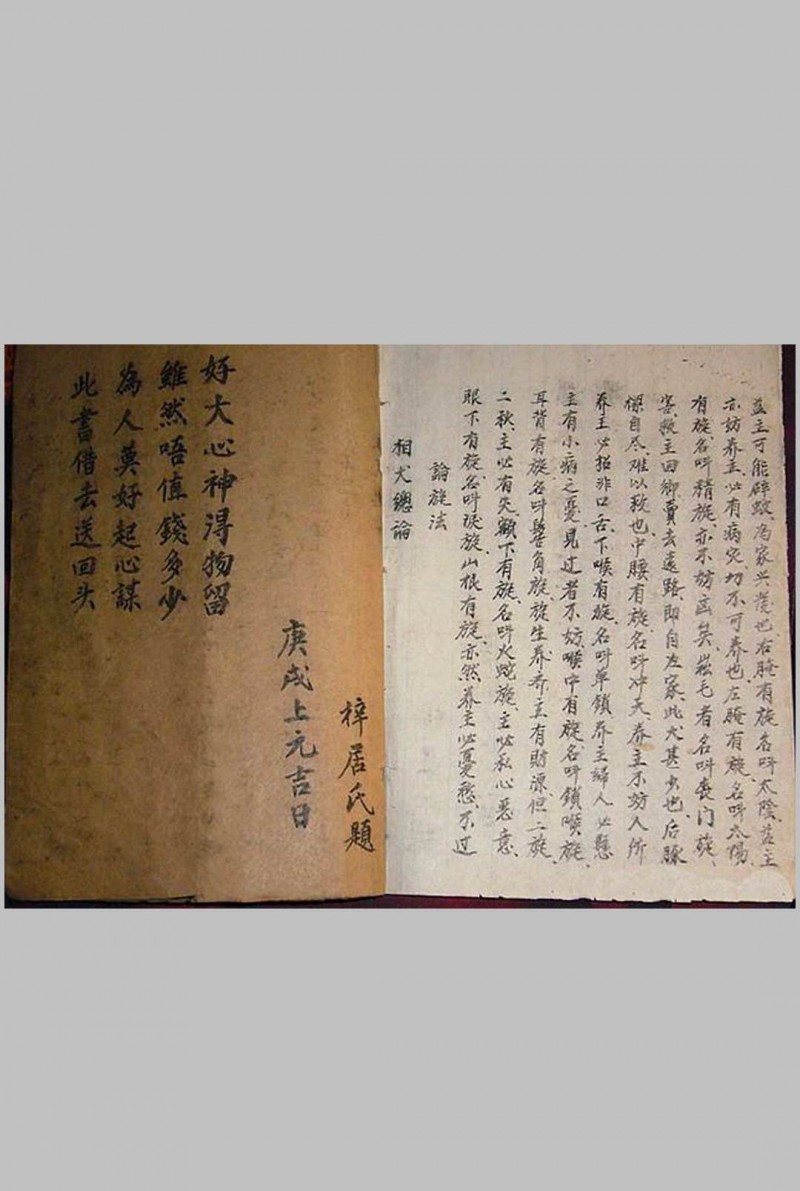 此書借去送回头
為人莫好起心謀
雖然唔值錢多少
好大心神淂物留
庚戌上元吉日
梓居氏題
相犬總論
論旋法
眼下有旋、名叫淚旋、山根有旋、亦然、养主必憂愁、不过
二秋、主必有失、額下有旋、名叫火蛇旋、主必私心惡意、
耳背有旋、名叫畢角旋、旋生养养主有財源、但二旋、
主有小病之憂、見过者不妨、喉中有旋、名叫鎖喉旋、
养主必招非口舌、下喉有旋、名叫单鎖、养主婦人必懸
樑自尽、难以救也、中腰有旋、名叫冲天、养主不妨人所
害、救主回鄉、賣去遠路、即自左家、此犬甚少也、后豚
有旋、名叫精旋、亦不妨凶矣、崧毛者名叫喪门旋、
亦妨养主、必有病灾、切不可养也、左腌有旋、名叫太陽、
益主可能辟蛟、为家兴茂也、右腌有旋、名叫太陰、益主